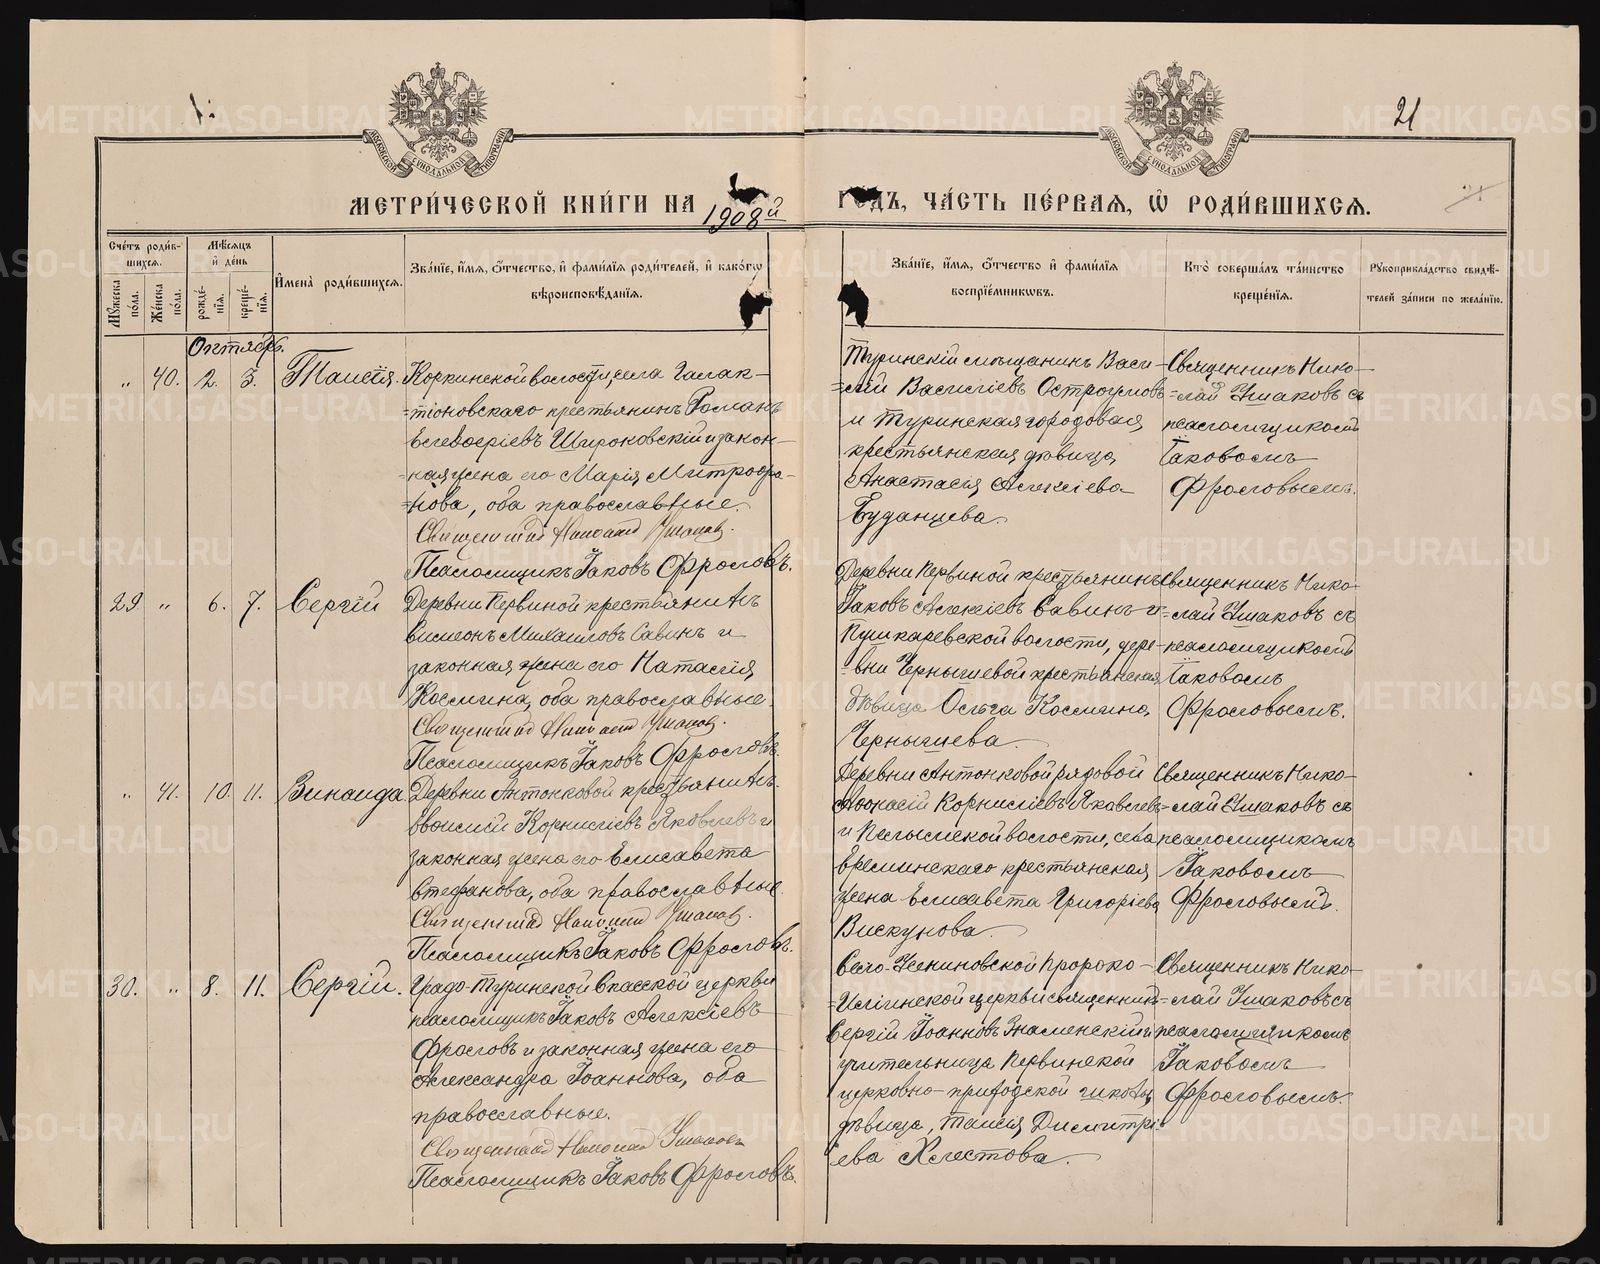 21
МЕТРИ́ЧЕСКОЙ КНИ́ГИ НА 1908й
ГОДЪ, ЧА́СТЬ ПЕ́РВАѦ, Ѡ РОДИ́ВШИХСѦ.
Сче́тъ роди́вшихсѧ.
Мѣ́сяцъ и де́нь
Мꙋ́жеска по́ла.
Же́нска по́ла.
рожде́нїѧ.
креще́нїѧ.
И҆мена̀ роди́вшихсѧ.
Зва́нїе, и҆́мѧ, ѻ҆́тчество, и҆ фами́лїѧ роди́телей, и҆ како́гѡ
вѣроисповѣ́данїѧ.
Зва́нїе, и҆́мѧ, ѻ҆́тчество и҆ фами́лїѧ
воспрїе́мниковъ.
Кто̀ соверша́лъ та́инство
креще́нїѧ.
Рꙋкоприкла́дство свидѣ́-
телей за́писи по жела́нїю.
Октябрь.
" 40. 2. 3. Таисія.
Коркинской волости, села Галак-
=тіоновскаго крестьянинъ Романъ
Елевѳеріевъ Широковскій и закон-
=ная жена его Марія Митрофа-
=нова, оба православные.
Священникъ Николай Ушаковъ.
Псаломщикъ Іаковъ Фроловъ.
Туринскій мѣщанинъ Васи-
=лій Васильевъ Остроумовъ
и Туринская городовая
крестьянская дѣвица,
Анастасія Алексіева
Буданцева.
Священникъ Нико-
=лай Ушаковъ съ
псаломщикомъ
Іаковомъ
Фроловымъ.
29 " 6. 7. Сергій
Деревни Первиной крестьянинъ
Симеонъ Михаиловъ Савинъ и
законная жена его Наталія
Космина, оба православные.
Священникъ Николай Ушаковъ.
Псаломщикъ Іаковъ Фроловъ.
Деревни Первиной крестьянинъ
Іаковъ Алексіевъ Савинъ и
Пушкаревской волости, дере-
=вни Чернышевой крестьянская
дѣвица Ольга Космина
Чернышева.
Священникъ Нико-
=лай Ушаковъ съ
псаломщикомъ
Іаковомъ
Фроловымъ.
" 41. 10. 11. Зинаида.
Деревни Антонковой крестьянинъ
Корниліевъ Яковлевъ и
законная жена его Елисавета
Стефанова, оба православные.
Священникъ Николай Ушаковъ.
Псаломщикъ Іаковъ Фроловъ.
Деревни Антонковой рядовой
Аѳонасій Корниліевъ Яковлевъ
и Пелымской волости, села
Еремински­аго крестьянская
жена Елисавета Григоріева
Вискунова.
Священникъ Нико-
=лай Ушаковъ съ
псаломщикомъ
Іаковомъ
Фроловымъ.
30. " 8. 11. Сергій.
Градо-Туринской Спасской церкви
псаломщикъ Іаковъ Алексіевъ
Фроловъ и законная жена его
Александра Іоаннова, оба
православные.
Священникъ Николай Ушаковъ
Псаломщикъ Іаковъ Фроловъ.
Село-Усениновской Пророко-
=Илiинской церкви священникъ
Сергій Іоанновъ Знаменскій и
учительница Первинской
церковно-приходской школы,
дѣвица, Таисія Димитрі-
ева Хлестова.
Священникъ Нико-
=лай Ушаковъ съ
псаломщикомъ
Іаковомъ
Фроловымъ.
METRIKI.GASO-URAL.RU